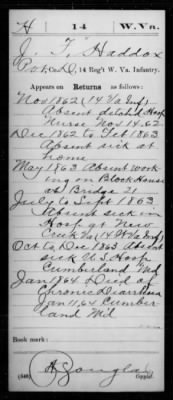 H 14 W.Va.
J. T. Haddox
Pvt, Co. D, 14 Reg't W. Va. Infantry.
Appears on Returns as follows:
Nov 1862 (14 Va Inf)
Absent detach'd Hosp
Nurse Nov 14, 62
Dec 1862 to Feb 1863
Absent sick at
home
May 1863 Absent work
ing on Block House
at Bridge 21
July to Sept 1863
Absent sick in
Hosp at New
Creek Va (14 W Va Inf)
Oct to Dec 1863 Absent
sick U.S. Hosp
Cumberland Md
Jan 1864 Died of
Chronic Diarrhoea
Jan 11, 64 Cumber
land Md
Book mark:
(546) Copyist.